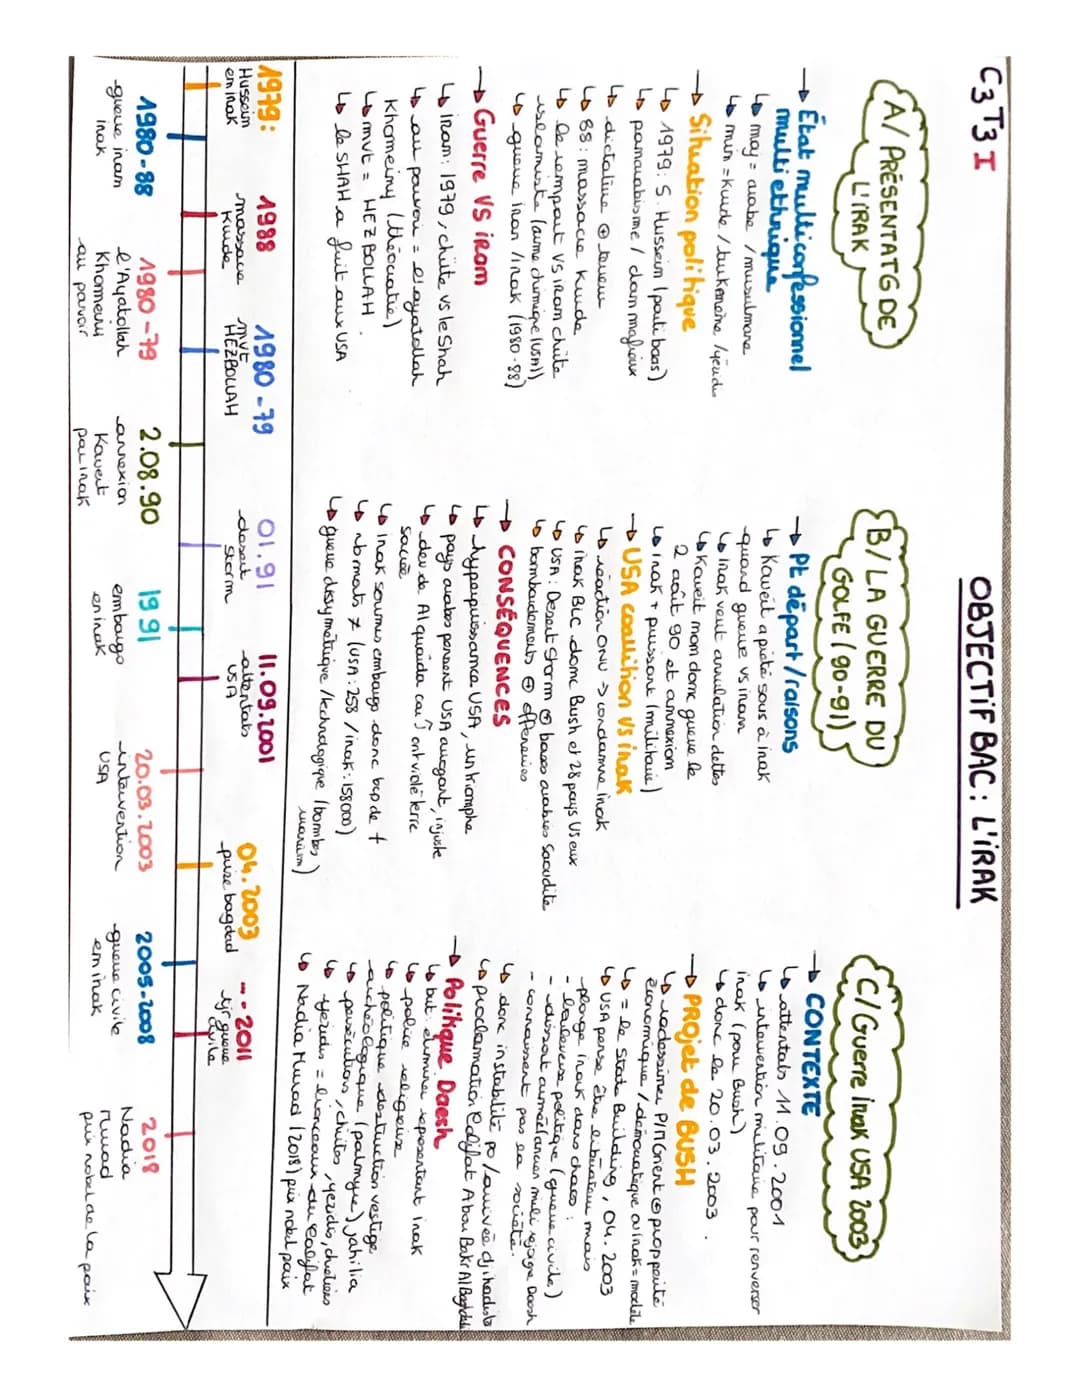 C3 T3 I
OBJECTiF BAC : L'iRAK
A/ PRÉSENTATº DE
L'IRAK
→ État multiconfessionnel
multiethnique
↳ maj = arabe / musulmane
↳ min = Kurde / turkmène / yézidis
→ Situation politique
↳ 1979 : S. Hussein (parti baas)
↳ panarabisme / clan mafieux
↳ dictature ⊕ terreur
↳ 88 : massacre Kurde
↳ le rempart vs iran chiite
islamiste (arme chimique (usn))
↳ guerre iran / irak (1980-88)
→ Guerre VS iran
↳ iran : 1979, chiite vs le Shah
↳ au pouvoir = el ayatollah
Khomeiny (théocratie)
↳ mvt = HEZBOLLAH
↳ le SHAH a fuit aux USA
B/ LA GUERRE DU
GOLFE (90-91)
→ Pt départ / raisons
↳ Koweit a prêté sous à irak
quand guerre vs iran
↳ irak veut annulation dettes
↳ Koweit non donc guerre le
2 août 90 et annexion
↳ irak + puissant (militaire)
→ USA coalition VS irak
↳ réaction ONU → condamne irak
↳ irak BLC donc Bush et 28 pays vs eux
↳ USA : Desert Storm ⊕ bases arabies saoudite
↳ bombardements ⊕ offensives
→ CONSÉQUENCES
↳ hyperpuissance USA, un triomphe
↳ pays arabes pensent USA arrogant, injuste
↳ dev de Al quaïda car J ont violé terre
sacrée
↳ irak soumis embargo donc bcp de †
↳ nb morts ≠ (USA : 253 / irak : 158000)
↳ guerre dissymétrique / technologique (bombes
uranium)
C/ Guerre irak USA 2003
→ CONTEXTE
↳ attentats 11.09.2001
↳ intervention militaire pour renverser
irak (pour Bush)
↳ donc le 20.03.2003.
→ PROjet de BUSH
↳ redessiner P/M Orient ⊕ prospérité
économique / démocratique où irak = modèle
↳ = le State Building, 04.2003
↳ USA pense être libérateur mais
plonge Irak dans chaos :
- bouleverse politique (guerre civile)
- dissout armée (ancien mili rejoigne Daesh
- connaissent pas sa société.
↳ donc instabilité po / arrivée djihadiste
↳ proclamation Califat Abou Bakr Al Baghdadi
→ Politique Daesh
↳ but : éliminer représentant irak
↳ police religieuse
↳ politique destruction vestige
archéologique (palmyre) jahilia
↳ persécutions, chiites, yézidis, chrétiens
↳ yézidis = berceaux du Califat
↳ Nadia Murad (2018) prix nobel paix
1979 :
Hussein
en irak
1988
massacre
Kurde
1980-79
mvt
HEZBOLLAH
01.91
desert
Storm
11.09.2001
attentats
USA
04.2003
prise bagdad
... - 2011
tjr guerre
civile
1980-88
guerre iran
irak
1980-79
l'Ayatollah
Khomeiny
au pouvoir
2.08.90
annexion
Koweit
par irak
1991
embargo
en irak
20.03.2003
intervention
USA
2005-2008
guerre civile
en irak
2018
Nadia
Murad
prix nobel de la paix